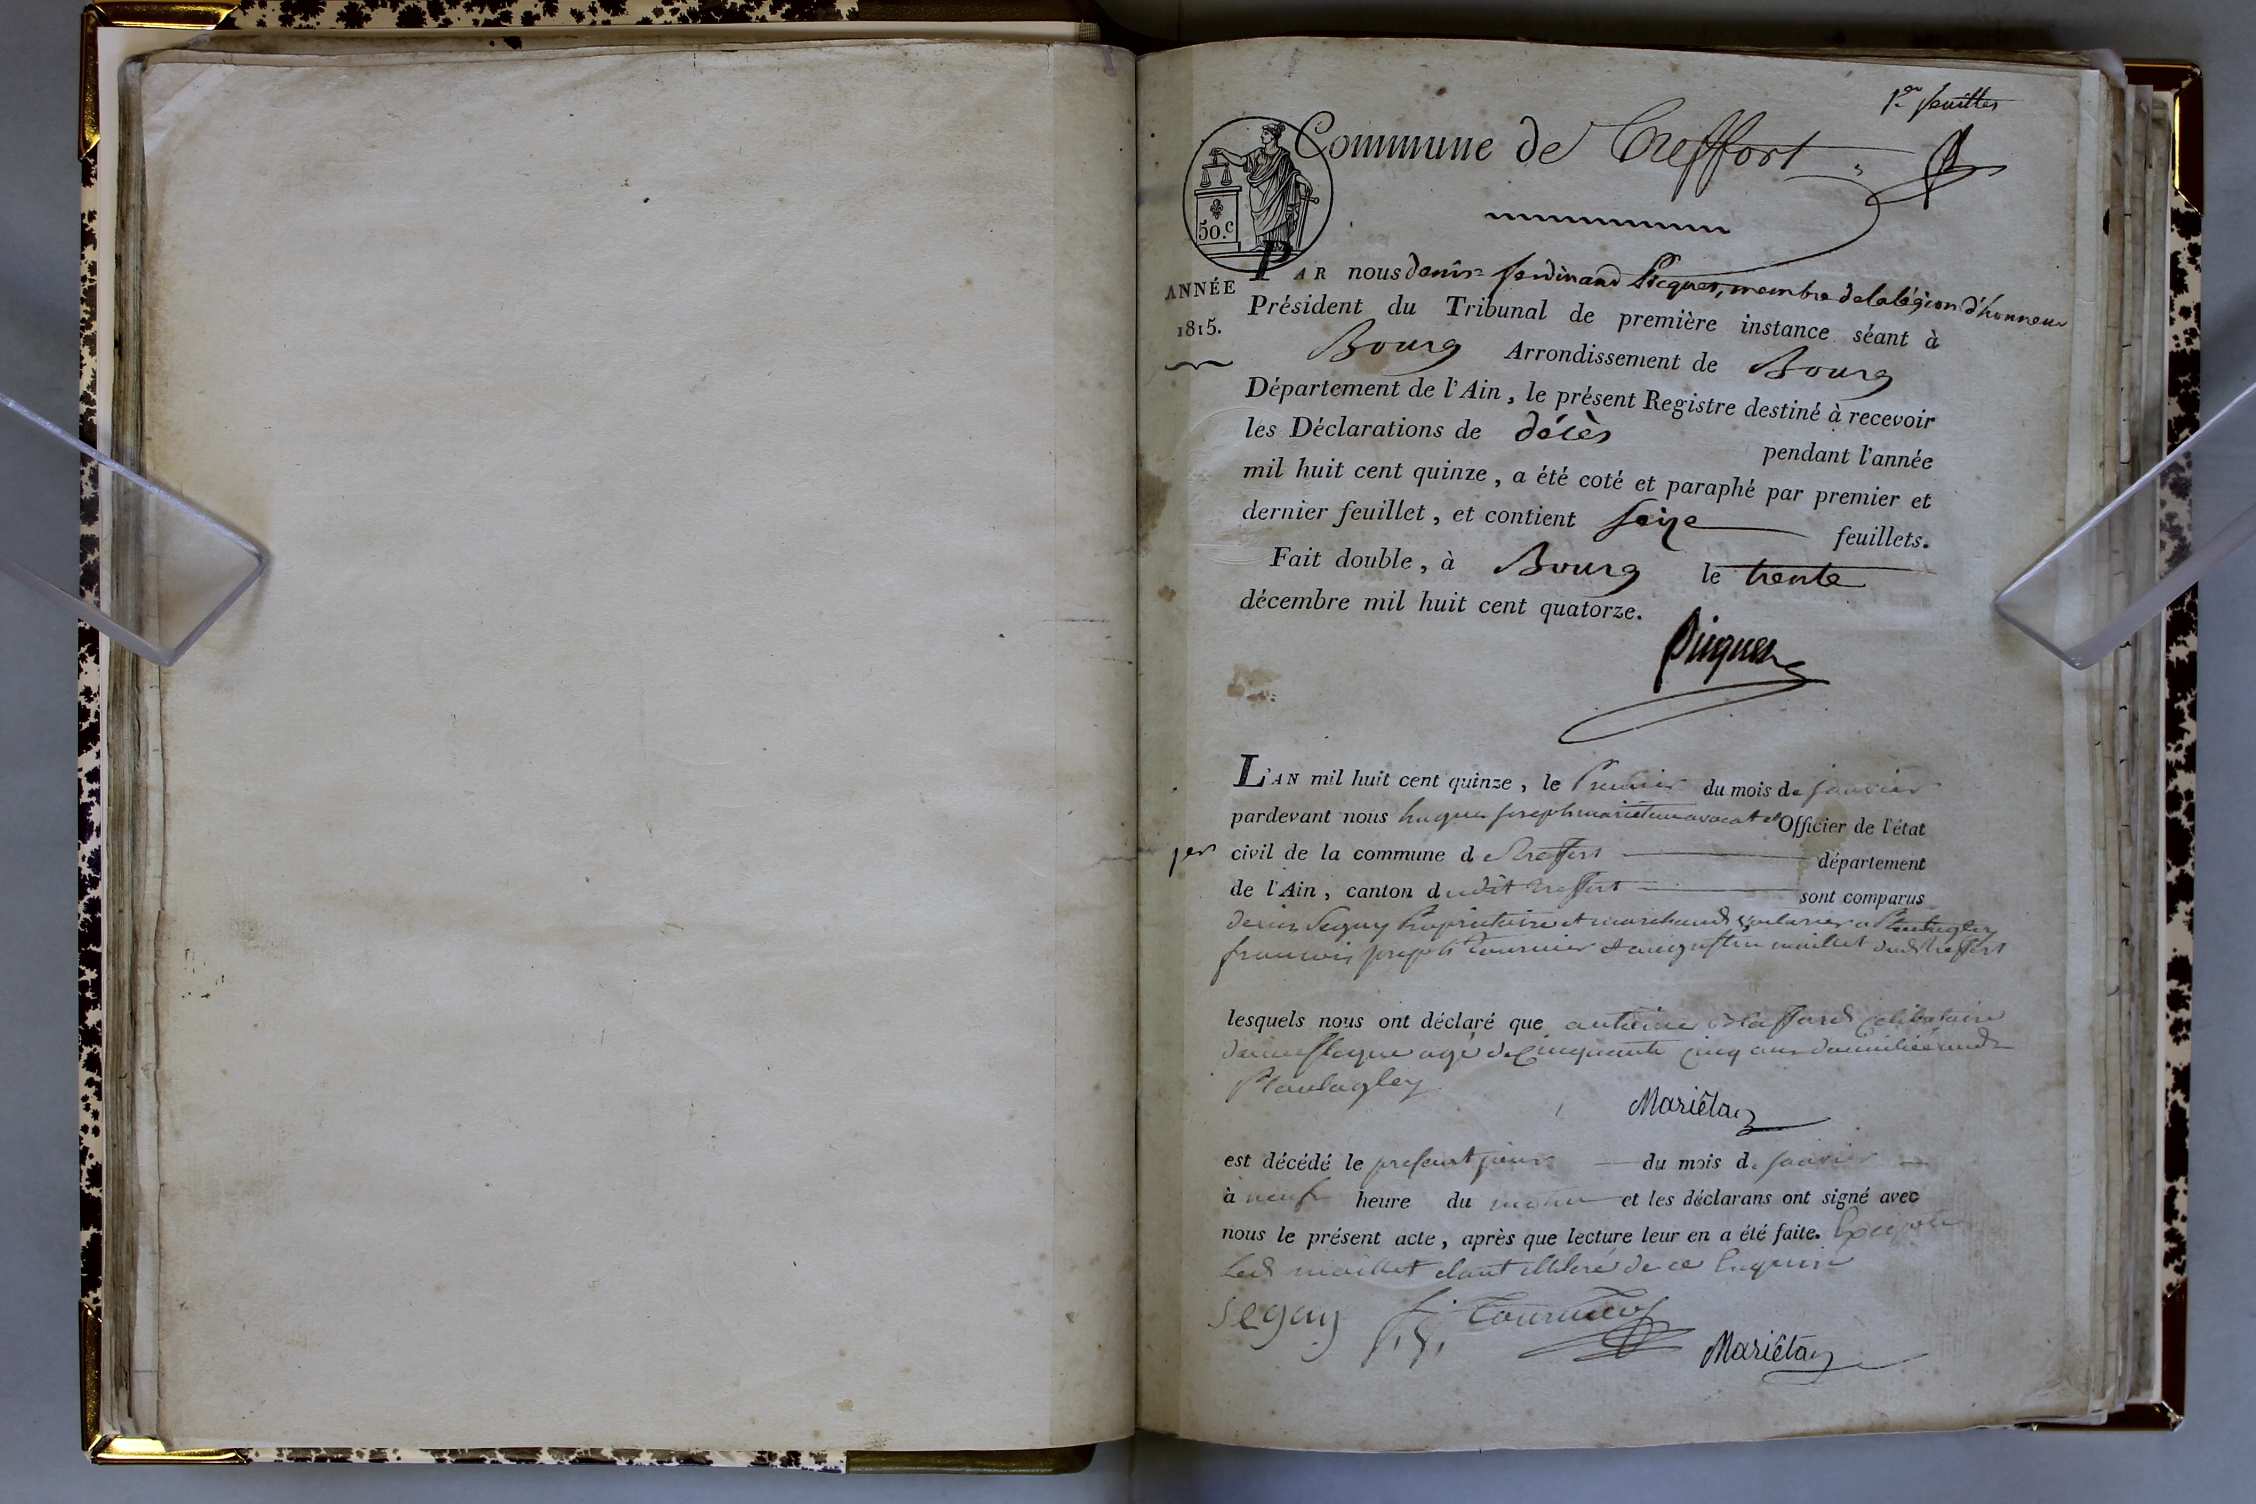 1er feuillet
Commune de Treffort
50.c
ANNÉE
1815.
PAR nous denis ferdinand Picquet, membre de la légion d'honneur
Président du Tribunal de première instance séant à
Bourg Arrondissement de Bourg
Département de l'Ain, le présent Registre destiné à recevoir
les Déclarations de décès pendant l'année
mil huit cent quinze, a été coté et paraphé par premier et
dernier feuillet, et contient seize feuillets.
Fait double, à Bourg le trente
décembre mil huit cent quatorze.
Picquet
1er
L'AN mil huit cent quinze, le Premier du mois de janvier
pardevant nous hugues joseph marietan avocat et Officier de l'état
civil de la commune de treffort département
de l'Ain, canton dudit treffort sont comparus
denis Seguy Propriétaire et marchand a
francois joseph tournier et augustin maillet dud treffort
lesquels nous ont déclaré que antoine celibataire
domestique agé de Cinquante cinq ans domicilié aud
Plantagley
Mariétan
est décédé le present jour du mois de janvier
à neuf heure du matin et les déclarans ont signé avec
nous le présent acte, après que lecture leur en a été faite. Excepté
led maillet étant illiteré de ce Enquis
Seguy f. j. tournier
Mariétan